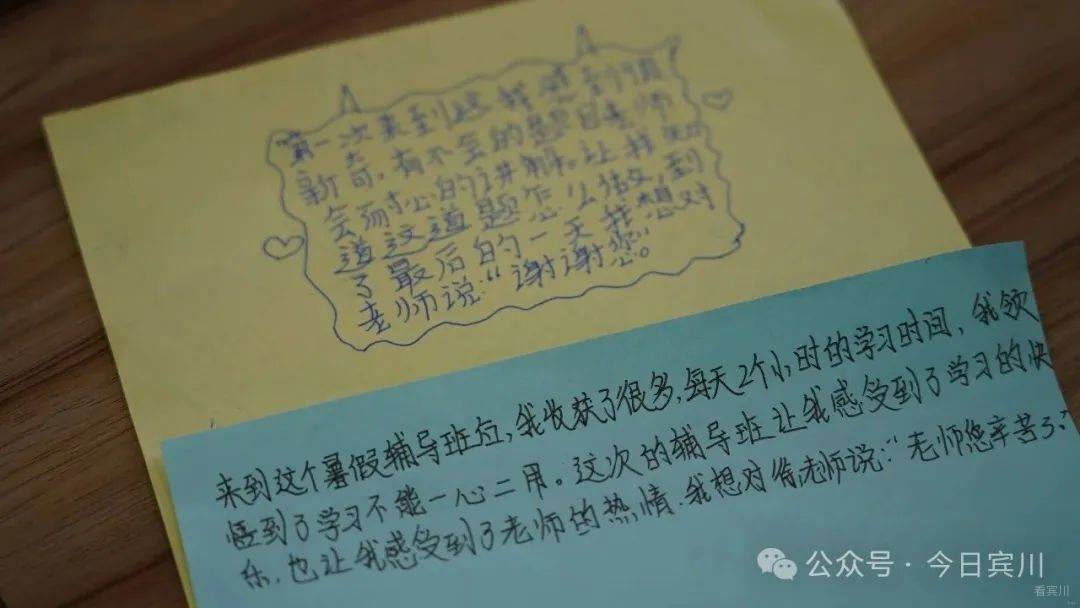 第一次来到这我感到很
新奇，有不会的题目老师
会耐心的讲解。让我知
道这道题怎么做，到
了最后的一天我想对
老师说：“谢谢您。”
来到这个暑假辅导班后，我收获了很多，每天2个小时的学习时间，我领
悟到了学习不能一心二用。这次的辅导班让我感受到了学习的快
乐，也让我感受到了老师的热情。我想对 老师说：“老师您辛苦了”
公众号·今日宾川
看宾川